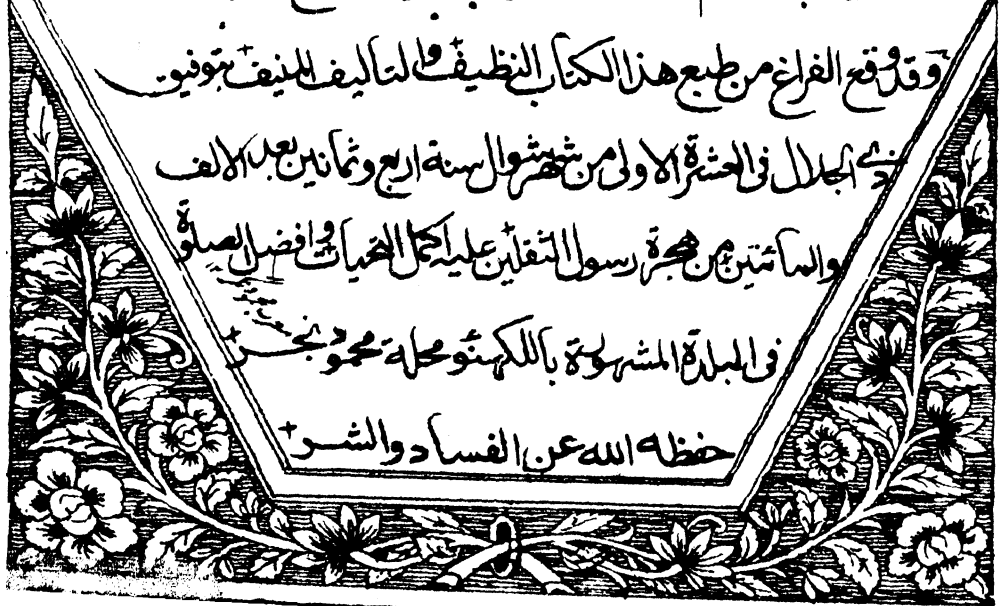 وقد وقع الفراغ من طبع هذا الكتاب النظيف والتاليف المنيف بتوفيق
ذى الجلال فى العشرة الاولى من شهر شوال سنة اربع وثمانين بعد الالف
والمائتين من هجرة رسول الثقلين عليه اكمل التحيات وافضل الصلوة
فى البلدة المشهورة باللكهنؤ محلة محمود نجر
حفظه الله عن الفساد والشر